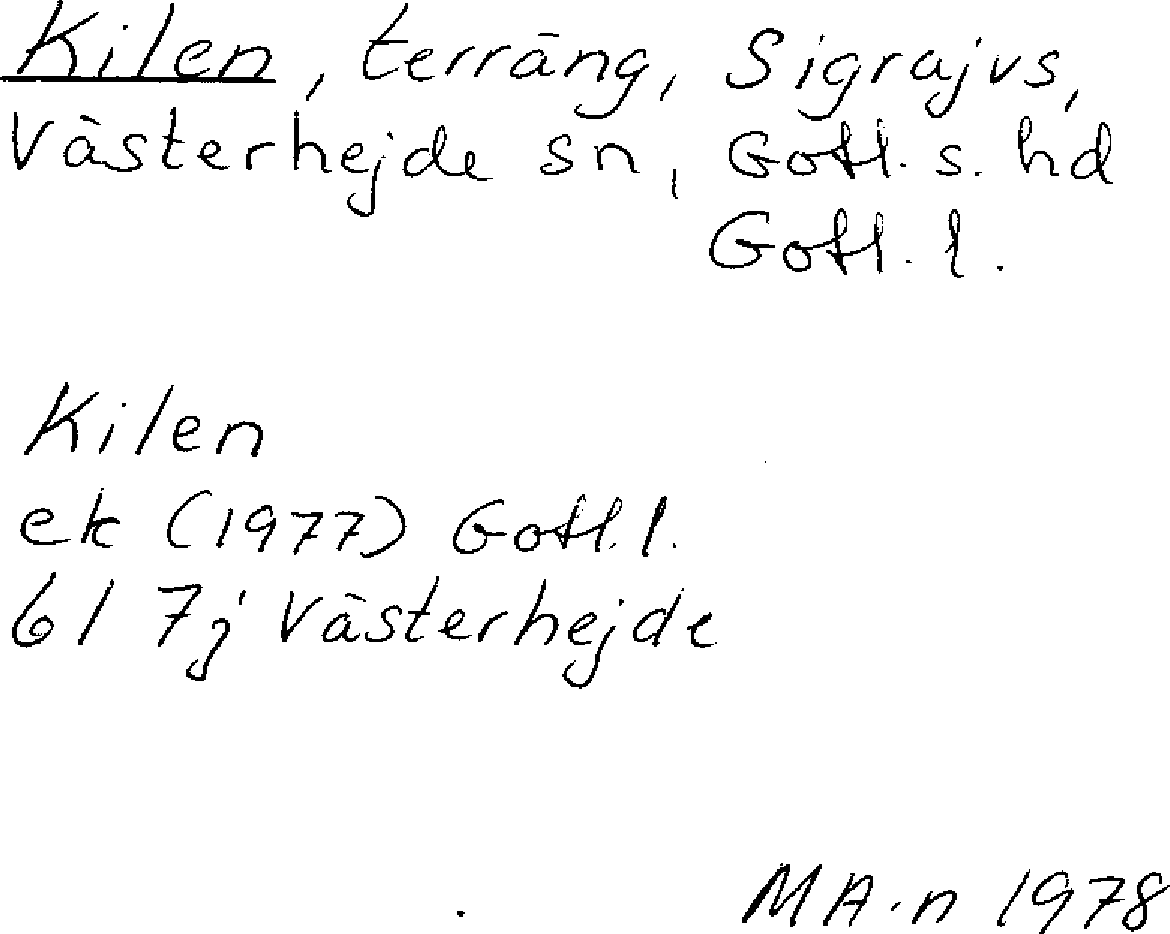 Kilen, terräng, Sigrajvs,
Västerhejde sn, Gotl. s. hd
Gotl. l.
Kilen
ek (1977) Gotl. l.
6I 7j Västerhejde
MA-n 1978